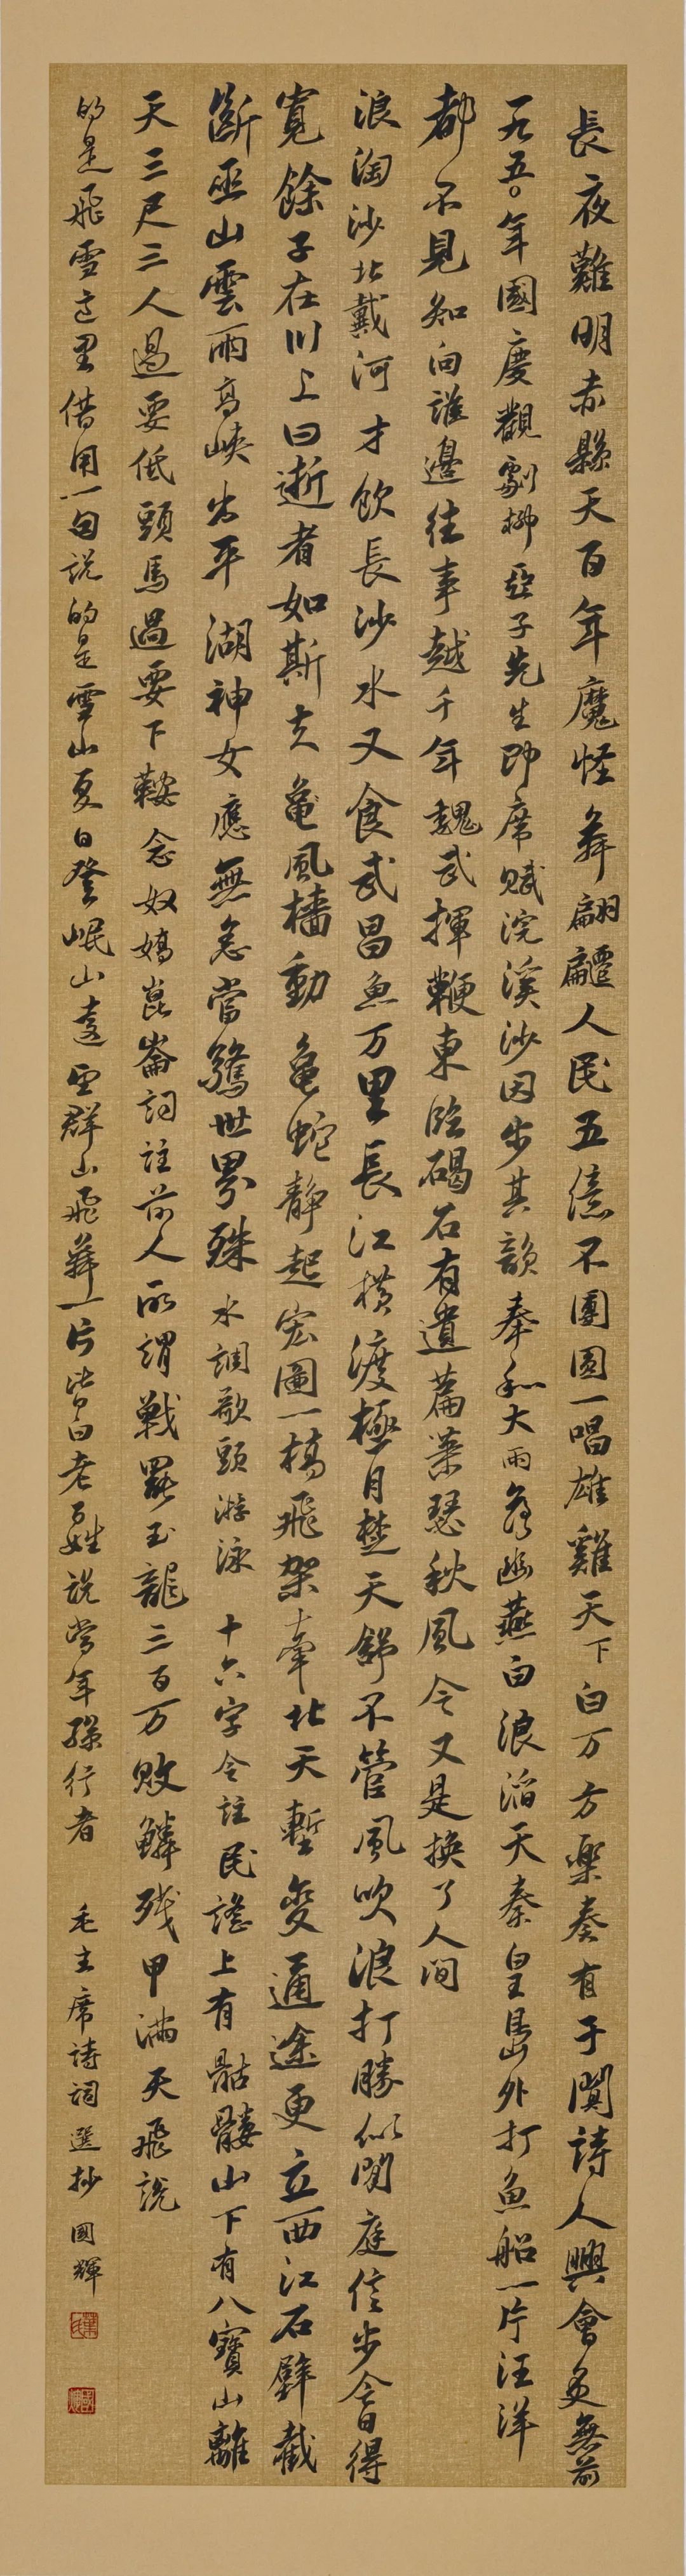 長夜難明赤縣天百年魔怪舞翩躚人民五億不團圓一唱雄雞天下白万方樂奏有于闐詩人興會更無前
一九五〇年國慶觀劇柳亞子先生即席賦浣溪沙因步其韻奉和大雨落幽燕白浪滔天秦皇島外打魚船一片汪洋
都不見知向誰邊往事越千年魏武揮鞭東臨碣石有遺篇蕭瑟秋風今又是換了人間
浪淘沙北戴河才飲長沙水又食武昌魚万里長江橫渡極目楚天舒不管風吹浪打勝似閒庭信步今日得
寬餘子在川上曰逝者如斯夫龜風檣動龜蛇靜起宏圖一橋飛架牽北天塹變通途更立西江石壁截
斷巫山雲雨高峽出平湖神女應無恙當驚世界殊水調歌頭游泳十六字令註民謠上有骷髏山下有八寶山離
天三尺三人過要低頭馬過要下鞍念奴嬌崑崙詞註前人所謂戰罷玉龍三百万敗鱗殘甲滿天飛說
的是飛雪這里借用一句說的是雪山夏日登岷山遠望群山飛舞一片皆白老百姓說當年孫行者
毛主席詩詞選抄國輝